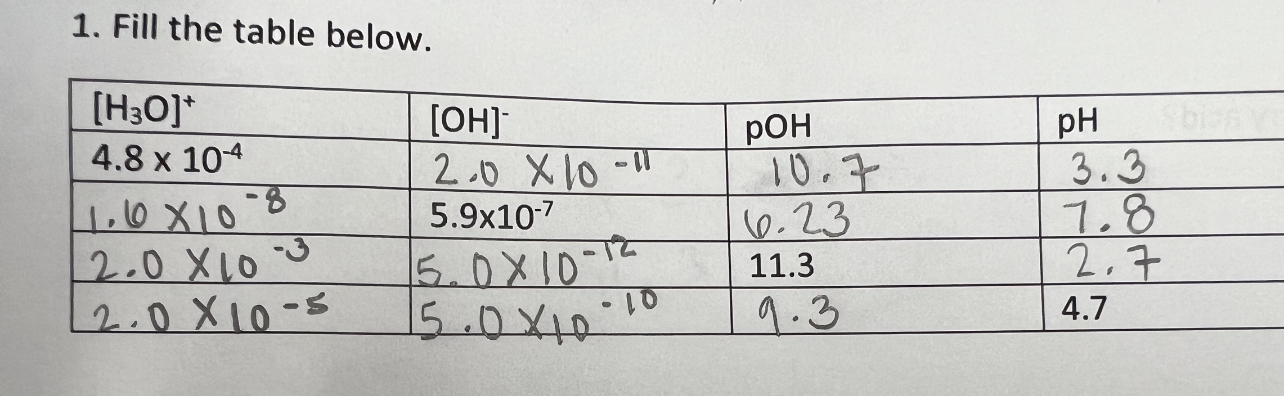 1. Fill the table below.
[H₃O]⁺ [OH]⁻ pOH pH
4.8 x 10⁻⁴ 2.0 X10⁻¹¹ 10.7 3.3
1.6 X10⁻⁸ 5.9x10⁻⁷ 6.23 7.8
2.0 X10⁻³ 5.0X10⁻¹² 11.3 2.7
2.0 X10⁻⁵ 5.0 X10⁻¹⁰ 9.3 4.7